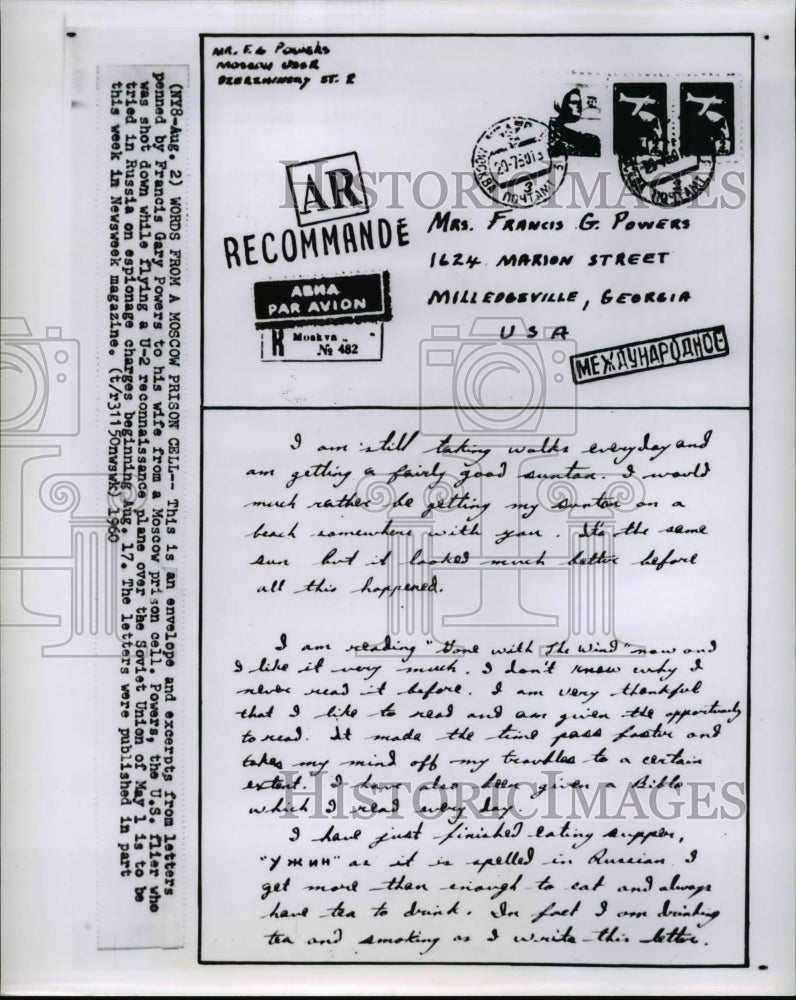 MR. F. G POWERS
MOSCOW USSR
DZERZHINSKY ST. 2
МОСКВА ПОЧТАМТ
AR
RECOMMANDÉ
АВИА
PAR AVION
R Moskva
№ 482
MRS. FRANCIS G. POWERS
1624 MARION STREET
MILLEDGEVILLE, GEORGIA
USA
МЕЖДУНАРОДНОЕ
I am still taking walks everyday and
am getting a fairly good suntan. I would
much rather be getting my suntan on a
beach somewhere with you. Its the same
sun but it looked much better before
all this happened.
I am reading "Gone with The Wind" now and
I like it very much. I don't know why I
never read it before. I am very thankful
that I like to read and am given the opportunity
to read. It made the time pass faster and
takes my mind off my troubles to a certain
extent. I have also been given a Bible
which I read every day.
I have just finished eating supper,
"УЖИН" as it is spelled in Russian. I
get more than enough to eat and always
have tea to drink. In fact I am drinking
tea and smoking as I write this letter.
(NY8-Aug. 2) WORDS FROM A MOSCOW PRISON CELL-- This is an envelope and excerpts from letters
penned by Francis Gary Powers to his wife from a Moscow prison cell. Powers, the U.S. flier who
was shot down while flying a U-2 reconnaissance plane over the Soviet Union of May 1 is to be
tried in Russia on espionage charges beginning Aug. 17. The letters were published in part
this week in Newsweek magazine. (t/r31150nwswk) 1960
HISTORIC IMAGES
HISTORIC IMAGES